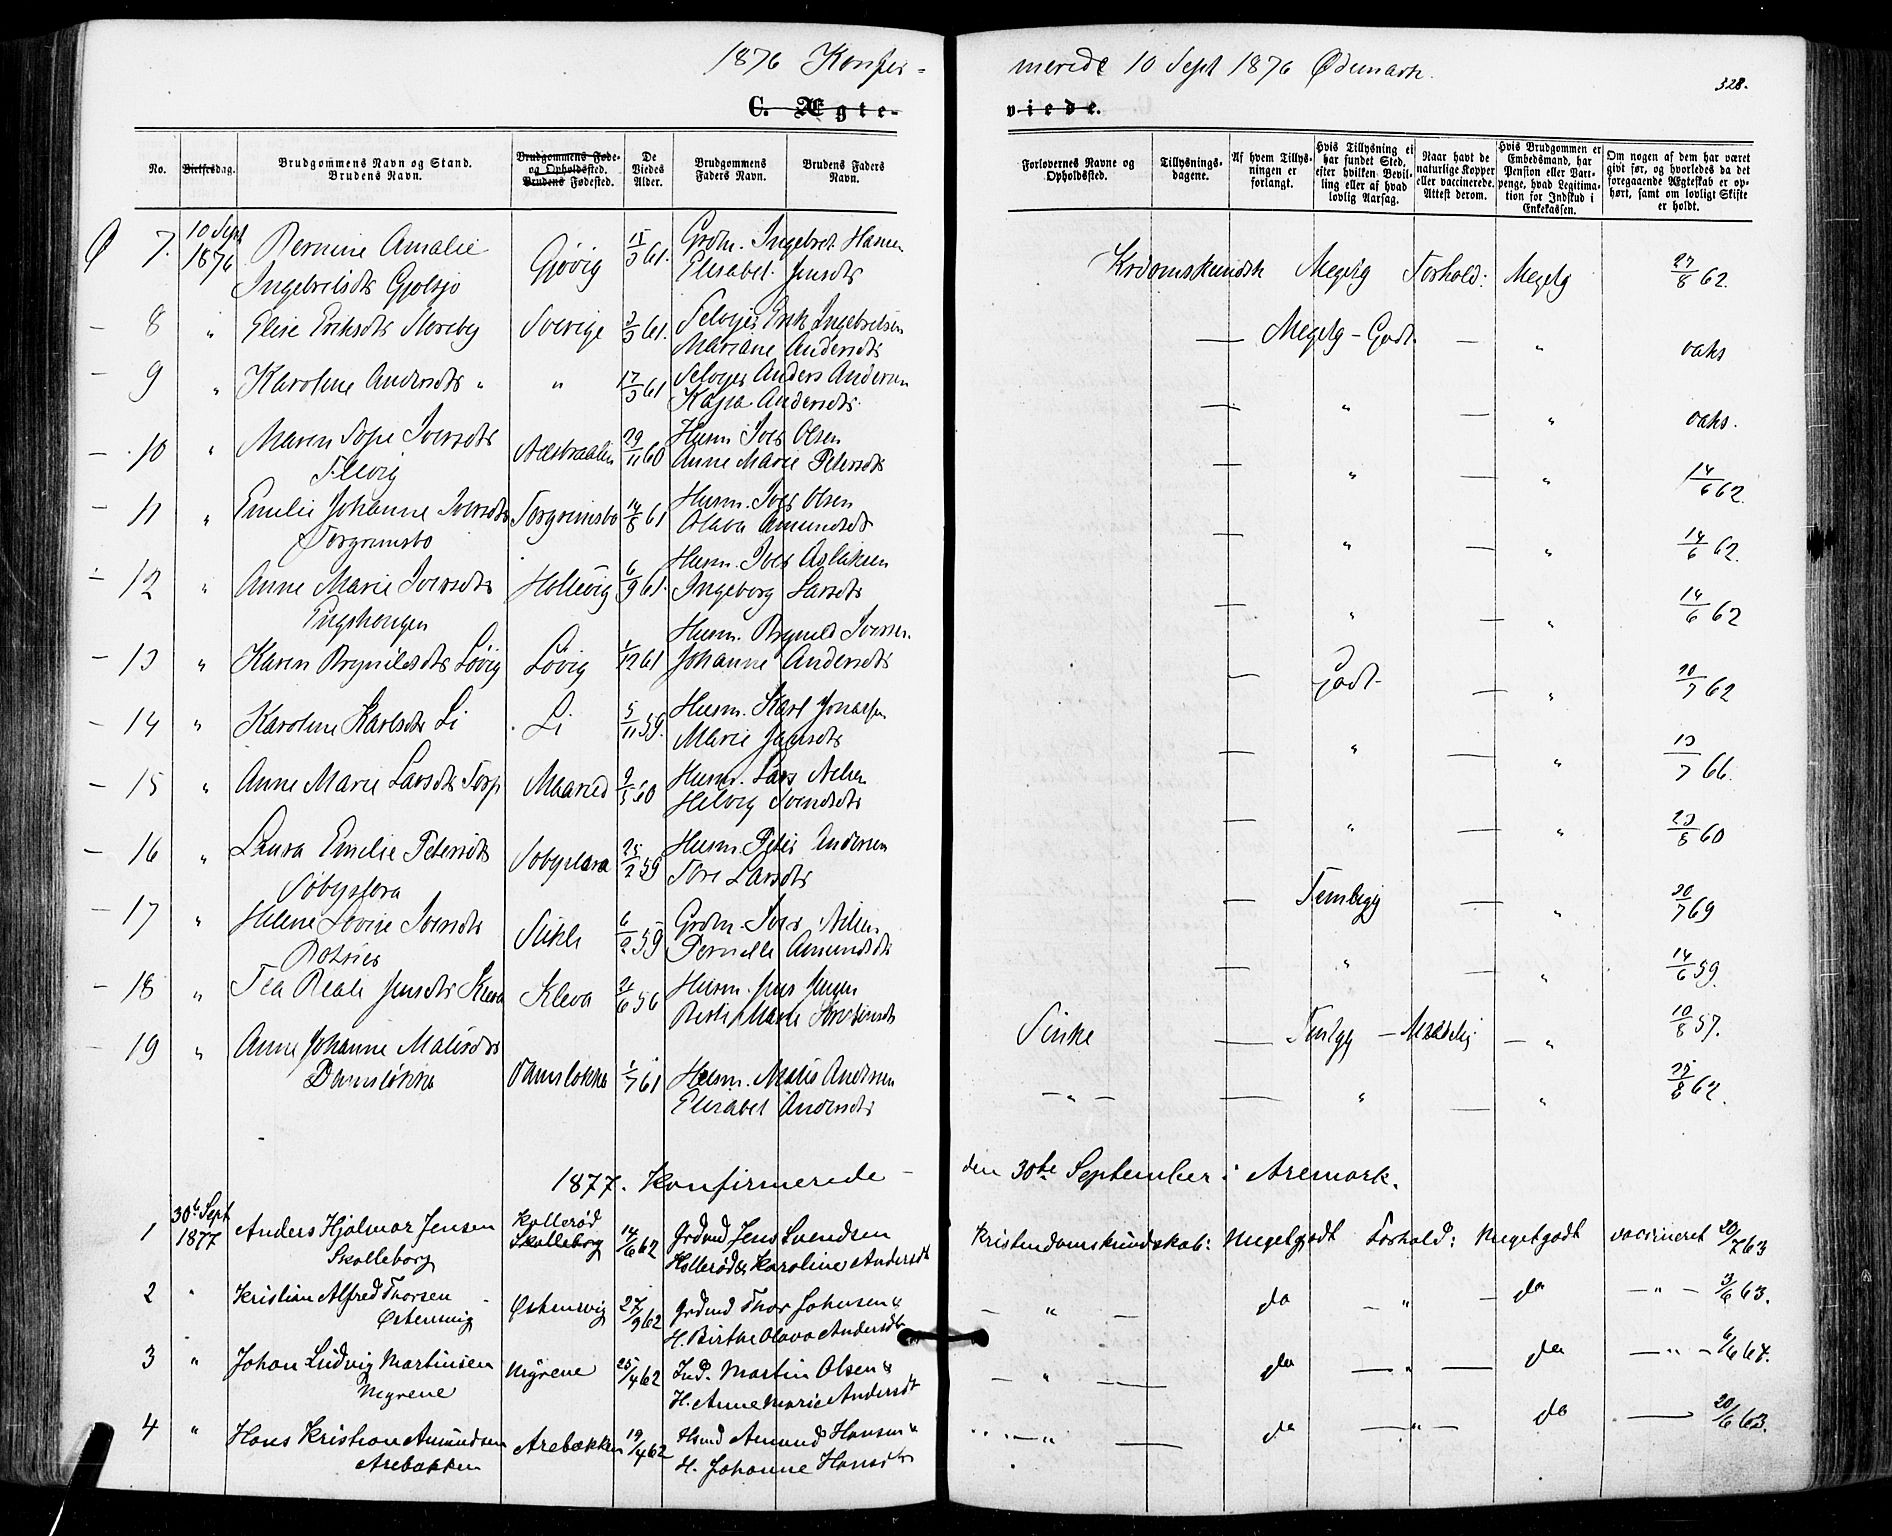 1876 Konfir- merede 10 Sept 1876 Ødemark.
328.
C. Ægte- viede.
No.
Vielsesdag.
Brudgommens Navn og Stand.
Brudens Navn.
Brudgommens Føde-
og Opholdssted.
Brudens Fødested.
De
Viedes
Alder.
Brudgommens
Faders Navn.
Brudens Faders
Navn.
Forlovernes Navne og
Opholdssted.
Tillysnings-
dagene.
Af hvem Tillys-
ningen er
forlangt.
Hvis Tillysning ei
har fundet Sted,
efter hvilken Bevil-
ling eller af hvad
lovlig Aarsag.
Naar havt de
naturlige Kopper
eller vaccinerede.
Attest derom.
Hvis Brudgommen er
Embedsmand, har
Pension eller Vart-
penge, hvad Legitima-
tion for Indskud i
Enkekassen.
Om nogen af dem har været
givt før, og hvorledes da det
foregaaende Ægteskab er op-
hørt, samt om lovligt Skifte
er holdt.
Ø 7. 10 Sept 1876 Bernine Amalie Gjøvig 15/3 61. Grdm. Ingebret Hansen
Ingebretsdtr Gjølsjø Elisabet Jensdtr Krdomskundsk Megetg Forhold: Megetg 27/8 62.
— 8 " Elise Eriksdtr Noreby Sverige 3/3 61. Selvejer Erik Ingebretsen
Mariane Andersdtr — Megetg - Godt. — " vaks
— 9 " Karoline Andersdtr " " 17/3 61 Selvejer Anders Andersen
Kajsa Andersdtr. — " — " vaks.
— 10 " Maren Sofie Iversdtr 29/11 60 Husm Iver Olsen
Flevig Anne Marie Petersdtr — " — " 14/6 62.
— 11 " Emilie Johanne Iversdtr Torgrimsbo 14/8 61 Husm. Iver Olsen
Torgrimsbo Olava Amundsdt — " — " 14/6 62.
— 12 " Anne Marie Iversdtr Hollevig 6/9 61. Husm. Iver Aslaksen
Engshaugen Ingeborg Larsdtr — " — " 14/6 62
— 13 " Karen Brynildsdtr Løvig Løvig 1/12 61 Husm. Brynild Iversen.
Johanne Andersdtr — Godt. — " 20/7 62
— 14 " Karoline Karlsdtr Li Li 5/11 59. Husm. Karl Jonassen
Marie Jensdtr — " — " 13/7 66.
— 15 " Anne Marie Larsdtr Torp Maarud 9/5 60 Husm. Lars Nilsen
Helvig Svendsdtr — " — " 23/8 60
— 16 " Laura Emilie Petersdtr Søbyslora 25/2 59 Husm. Peter Andersen
Søbyslora Tore Larsdtr — Temlegg — " 20/7 69
— 17 " Helene Lovise Iversdtr 6/2 59 Grdm. Iver Nilsen
Pernille Amundsdtr — " — " 14/6 59.
— 18 " Tea Beate Jensdtr Kleva Kleva 2/6 56 Husm. Jens Jensen
Berte Marie Sinke — Temlgg — — " 10/8 57.
— 19 " Anne Johanne Matisdtr Damsløkka 1/7 61 Husm. Matis Andersen
Damsløkka Elisabet Andersdtr — " — — " — " 29/8 62.
1877. Konfirmerede - den 30te September i Aremark.
1 30te Sept 1877 Anders Hjalmar Jensen Kollerød 14/6 62 Grdmd Jens Svendsen
Skolleborg Skolleborg Hollerød & Karoline Andersdt Kristendomskundskab: Megetgodt Forhold: Megetgodt vaccineret 20/7 63
2 " Kristian Alfred Thorsen Østensvig 27/9 62 Grdmd Thor Johnsen &
Østensvig H. Birthe Olava Andersdtr — " do — " — do — " — 3/6 63.
3 " Johan Ludvig Martinsen Myrene 25/4 62 Ind. Martin Olsen &
Myrene H. Anne Marie Andersdt — " — do — " — do — " — 6/6 67.
4 " Hans Kristian Amundsen Arebækken 19/4 62 Hsmd Amund Hansen &
Arebækken H. Johanne Hansdtr — " — do — " — do — 20/6 63.